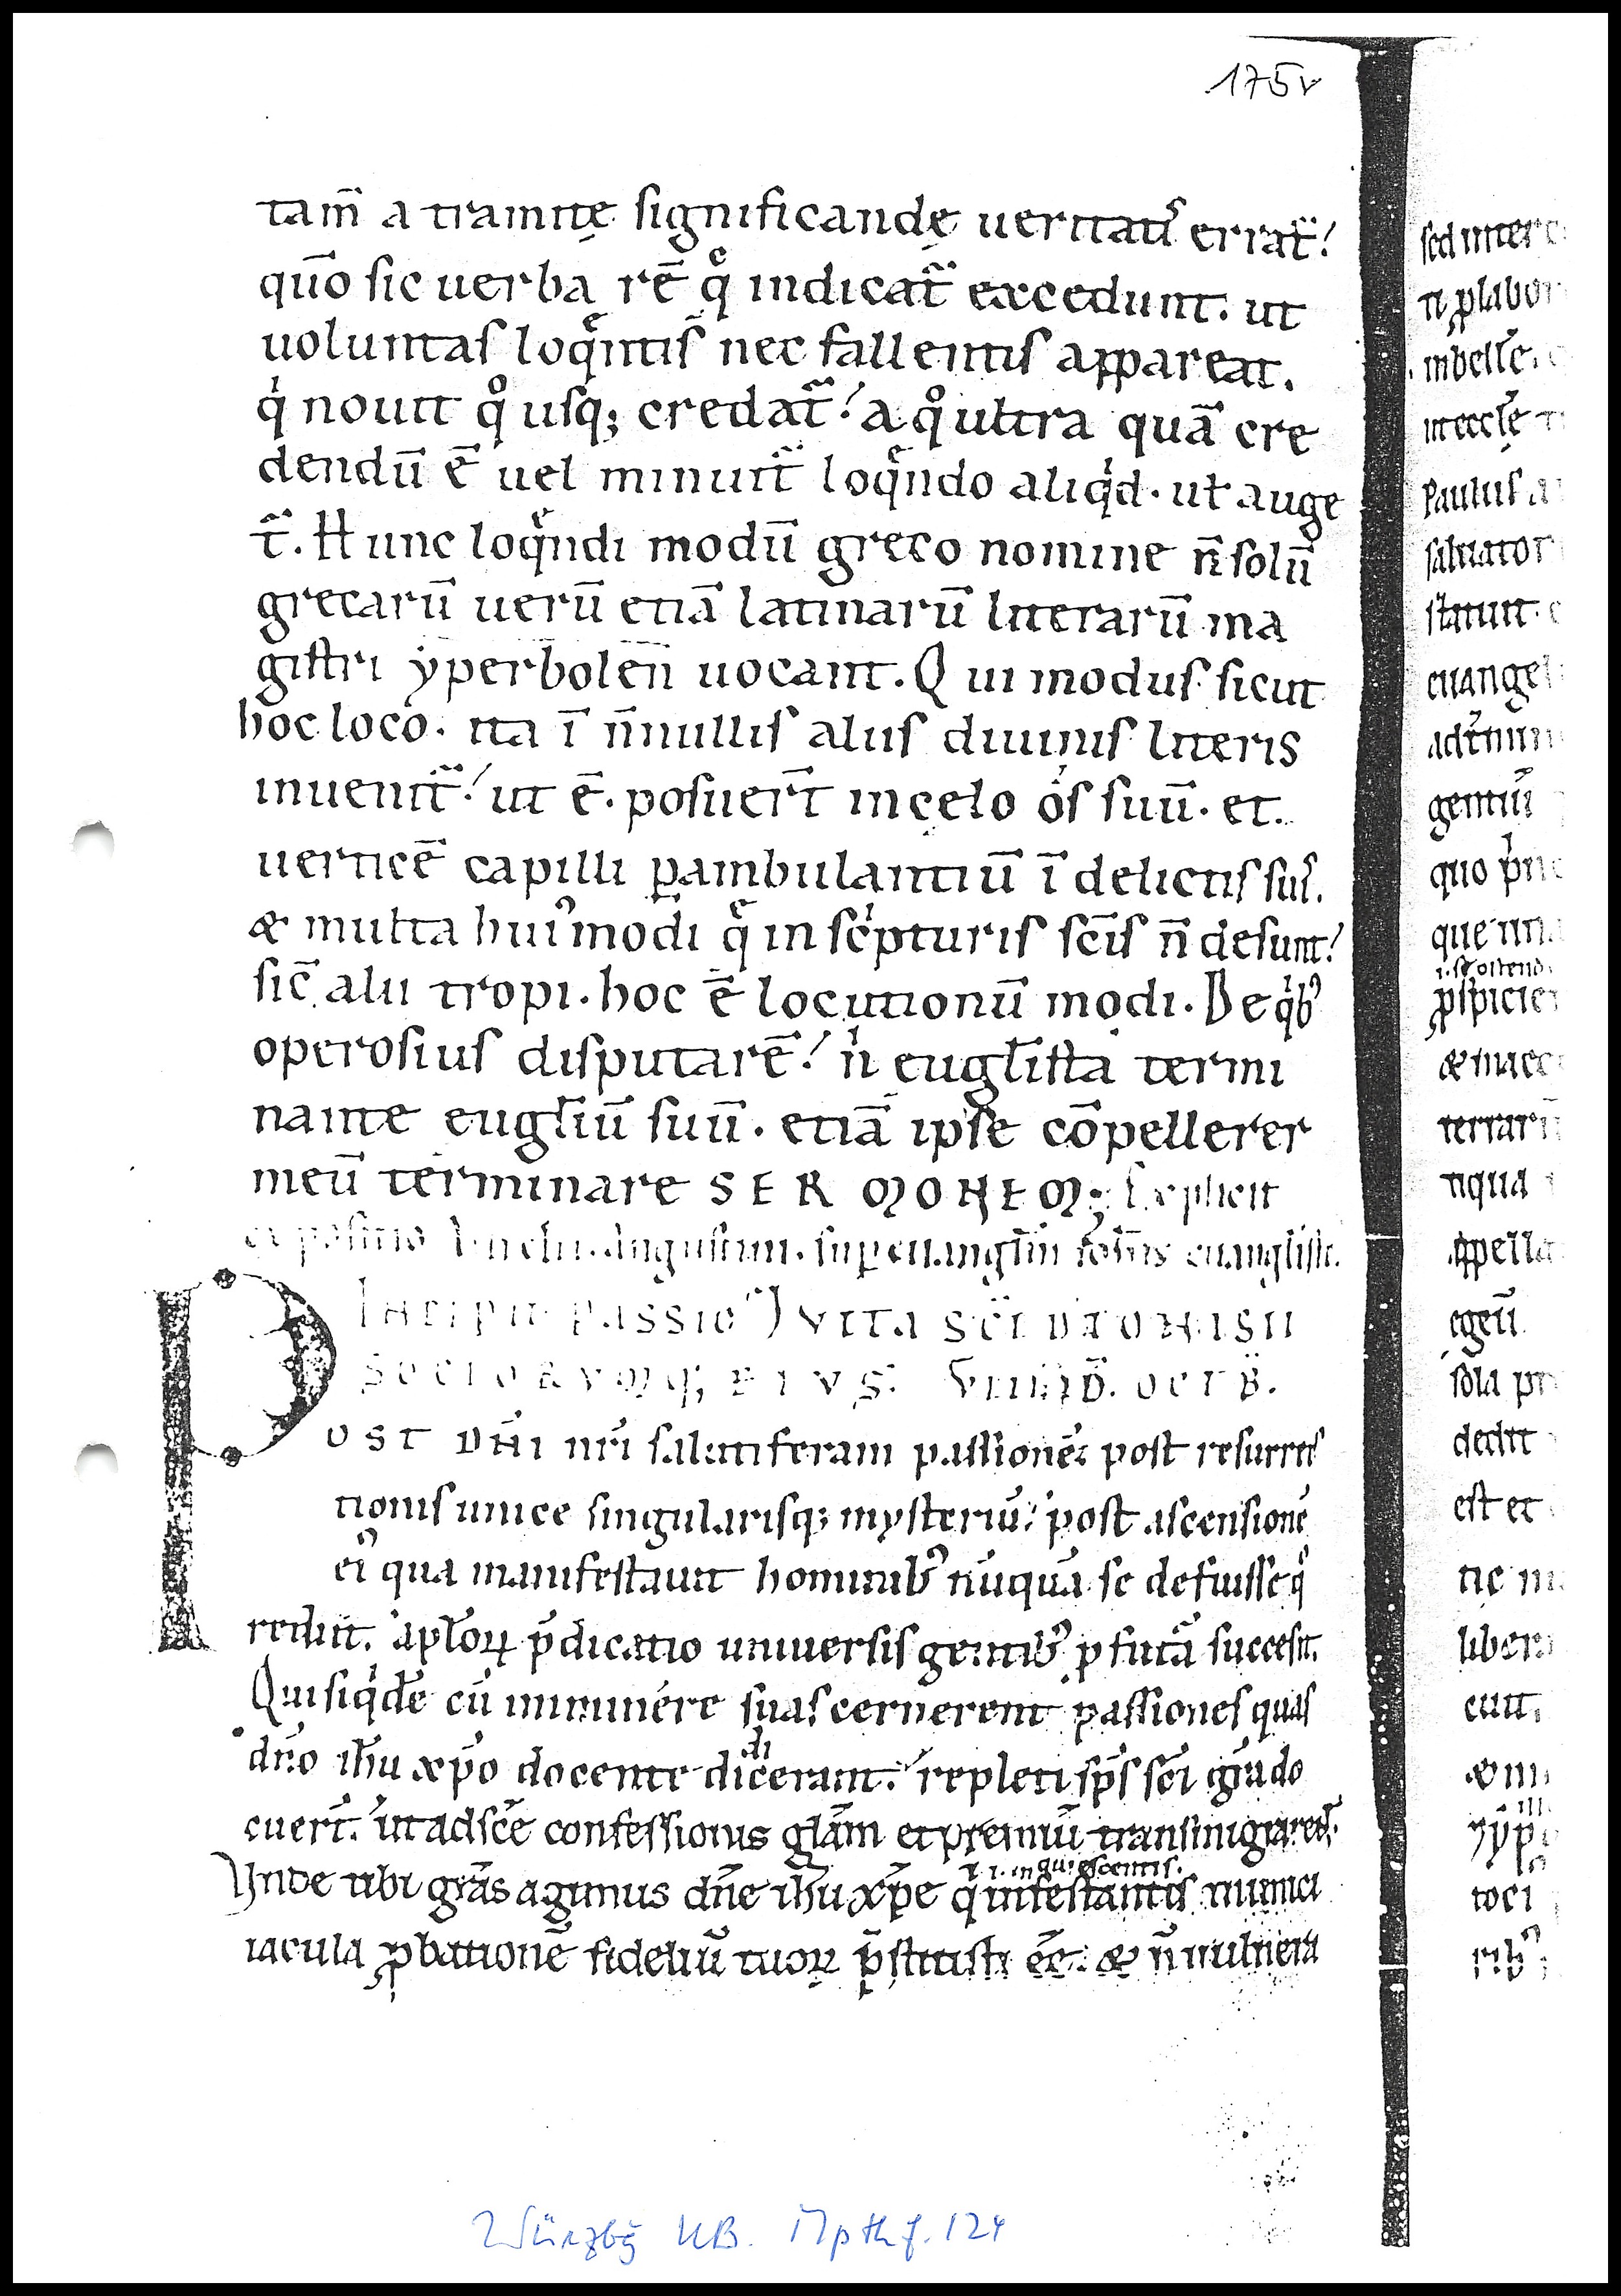 175v
tam̄ a tramitę significandę ueritatis errat͛!
quō sic uerba rē q̄ indicat͛ excedunt. ut
uoluntas loq̄ntis nec fallentis appareat.
qͥ nouit qͦ usq; credat͛! a qͦ ultra quā cre
dendū ē uel minuit͛ loq̄ndo aliqͥd. uł auge
t͛. Hunc loq̄ndi modū greco nomine n̄ solū
grecarū uerū etiā latinarū literarū ma
gistri ẏperbolen̄ uocant. Qui modus sicut
hoc loco. ita ī n̄nullis aliis diuinis literis
inuenit͛! ut ē. posuer̄t in cęlo os suū. et
uerticē capilli ꝑambulantiū ī delictis suis.
& multa huiꝰmodi q̄ in scͥpturis scīs n̄ desunt!
sic̄ alii tropi. hoc ē locutionū modi. De qͥbꝰ
operosius disputarē! nͥ euglīsta termi
nante euglīū suū. etiā ipse cōpellerer
meū terminare SERMONEM; Explicit
expositio Augustini. sup euangłm iohīs euanglistę.
Incipit passio ł vita scī dionisii
sociorumq; eius. VIIII ID. OCTB.
Post dn̄i nr̄i salutiferam passionē; post resurrec
tionis unice singularisq; mysteriū! post ascensionē
eiꝰ qua manifestauit hominibꝰ nūquā se defuisse qͦ
rediit. aplōꝝ p̄dicatio uniuersis gentibꝰ ꝓfutā succesit.
Qui siqͥdē cū imminere suas cernerent passiones quas
dn̄o ihū xp̄o docente dicerant! repleti sp̄s scī gr̄a do
di
cuer̄t. ut ad scē confessionis głam et premiū transmigrared͛.
ł i. inquiescentis.
Vnde tibi gr̄as agimus dn̄e ihū xp̄e q infestantis inimici
iacula ꝓbationē fideliū tuoꝝ p̄stitisti ēē. & n̄ uulnera
sed inter
ti ꝓlabor
paulus a
saluator
statuit.
euangel
gentiū
quo
ꝓspicie
terrarū
appella
egeū
dedit
est et
liber
cuit.
Würzbg UB. Mp th f. 124